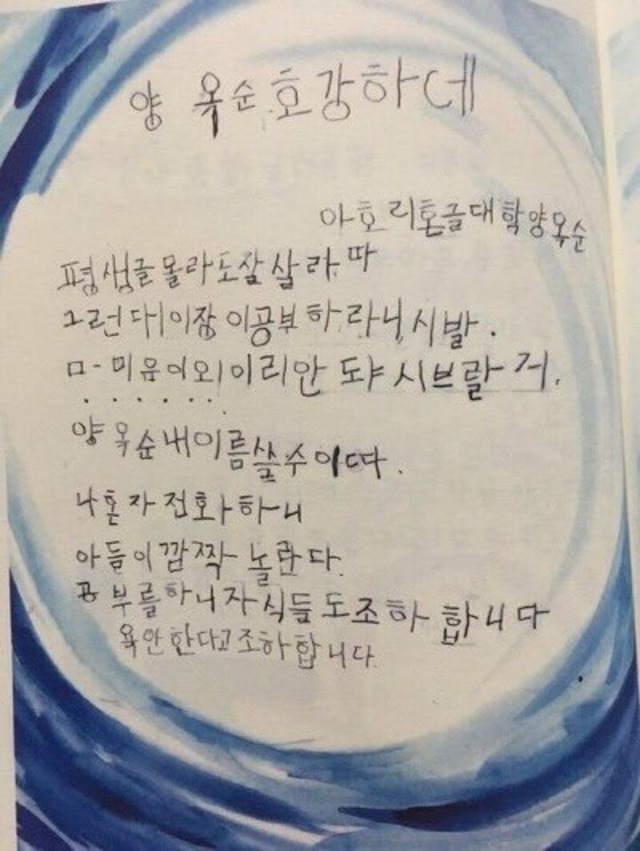 양 옥순호강하데
아호리혼글대학양옥순
평생글몰라도잘살라따
그런대이장이공부하라니,시발.
ㅁ-미음이외이리안 도야 시브랄거.
. . . . . .
양옥순내이름쓸수이따.
나혼자전화하니
아들이깜짝놀란다.
공부를하니자식들도조하합니다
욕안한다고조하합니다.